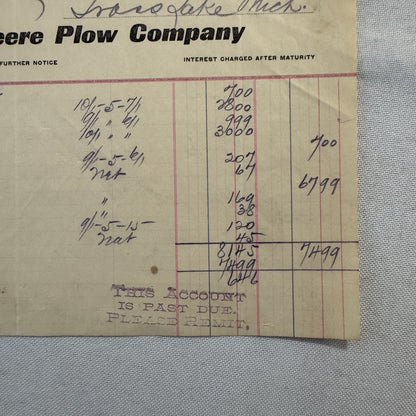 Grass Lake Mich.
eere Plow Company
FURTHER NOTICE INTEREST CHARGED AFTER MATURITY
10/1-5-7/1 700
9/1 " 6/1 2800
10/1 " " 999
3000
700
9/1-5-6/1 207
Net 67
6799
" 169
" 38
9/1-5-15 120
Net 45
8145 7499
7499
646
THIS ACCOUNT
IS PAST DUE.
PLEASE REMIT.